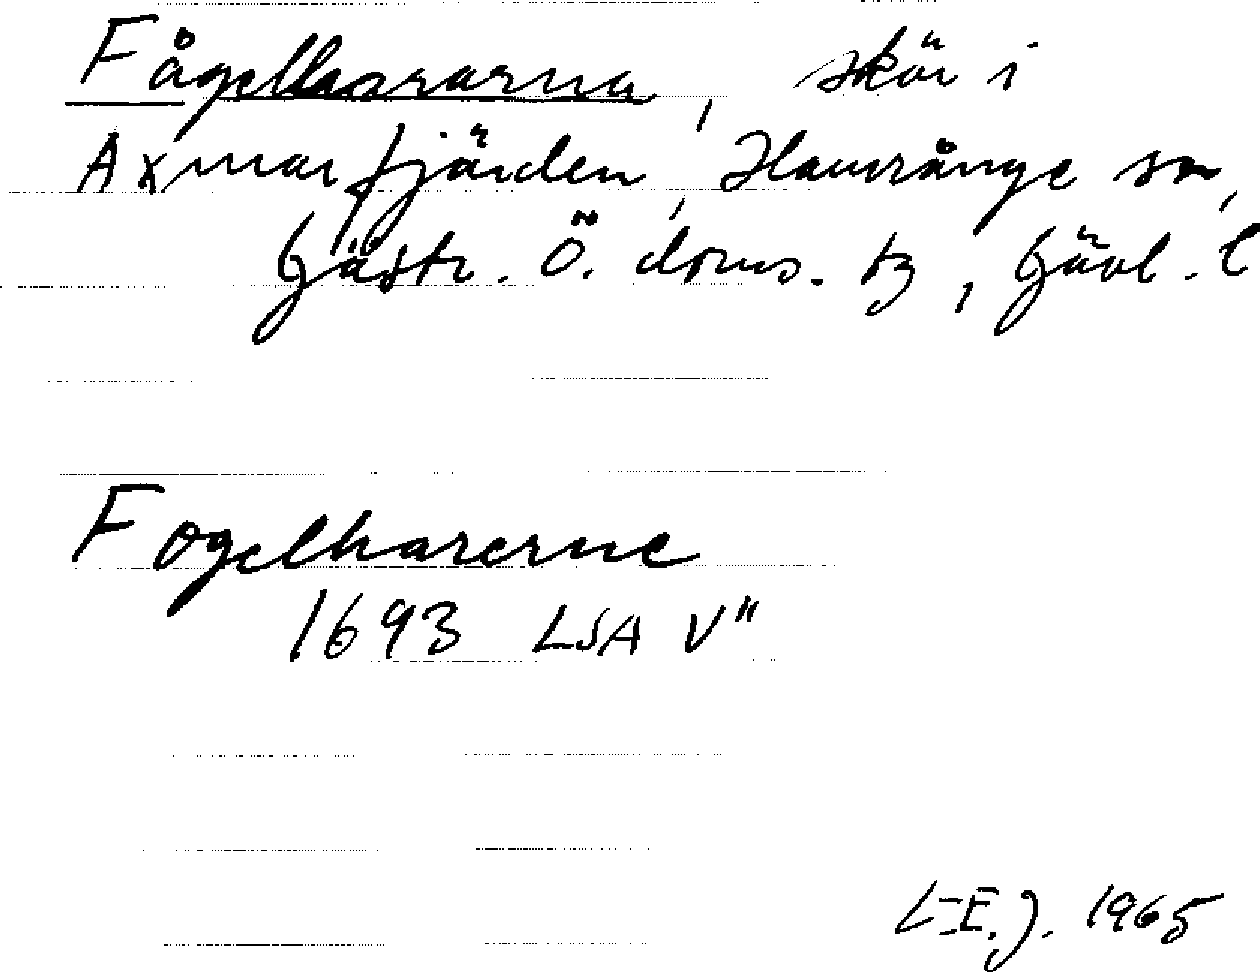 Fågelharrarna, skär i
Axmarfjärden, Hamrånge sn,
Gästr. Ö. doms. tg, Gävl. l
Fogelharerne
1693 LSA V"
L-E.J. 1965